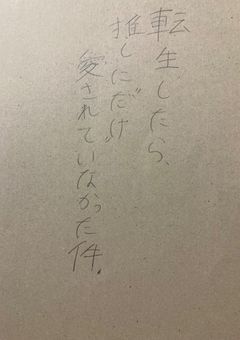 転生したら、
推しにだけ
愛されていなかった件.